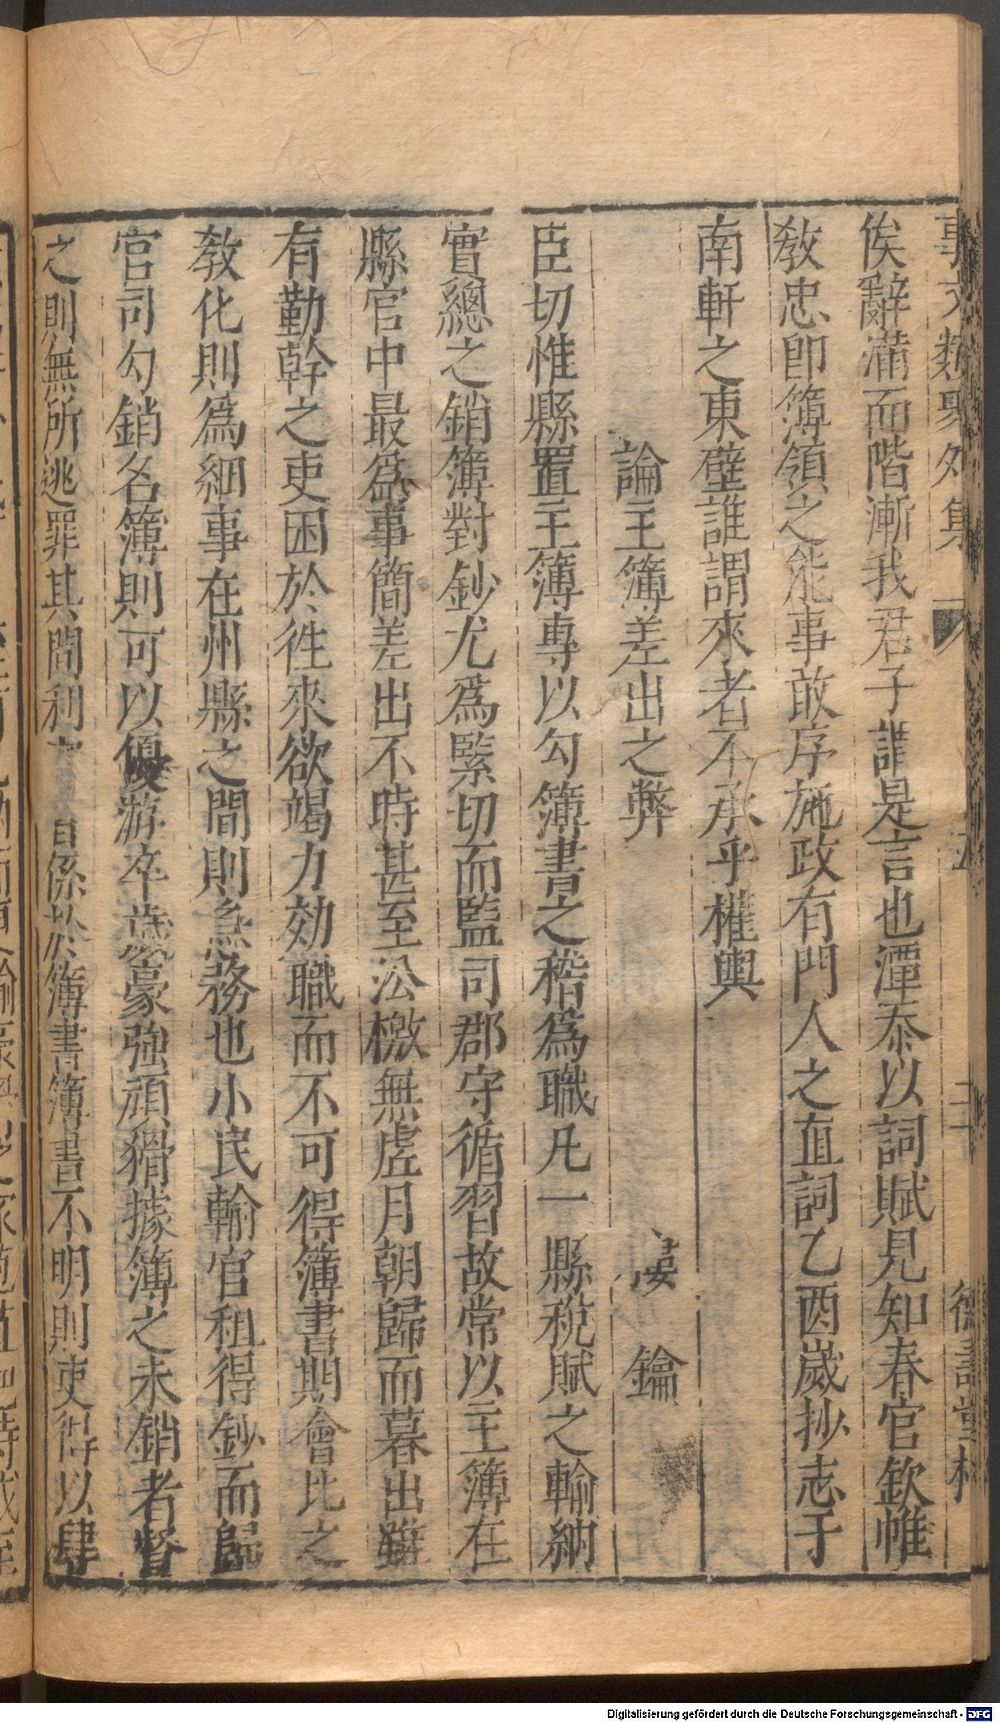 事文類聚外集
德壽堂梓
俟辭滿而階漸我君子誰是言也潭忝以詞賦見知春官欽帷
敎忠卽簿領之能事敢序施政有門人之直詞乙酉歲抄志于
南軒之東壁誰謂來者不承乎權輿
論主簿差出之弊 婁 鑰
臣切惟縣置主簿專以勾簿書之稽爲職凡一縣稅賦之輸納
實總之銷簿對鈔尤爲緊切而監司郡守循習故常以主簿在
縣官中最爲事簡差出不時甚至沿檄無虗月朝歸而暮出雖
有勤幹之吏困於徃來欲竭力効職而不可得簿書期會比之
敎化則爲細事在州縣之間則急務也小民輸官租得鈔而歸
官司勾銷名簿則可以優游卒歲豪強頑猾據簿之未銷者督
之則無所逃罪其間利 係於簿書簿書不明則吏得以肆
Digitalisierung gefördert durch die Deutsche Forschungsgemeinschaft - DFG